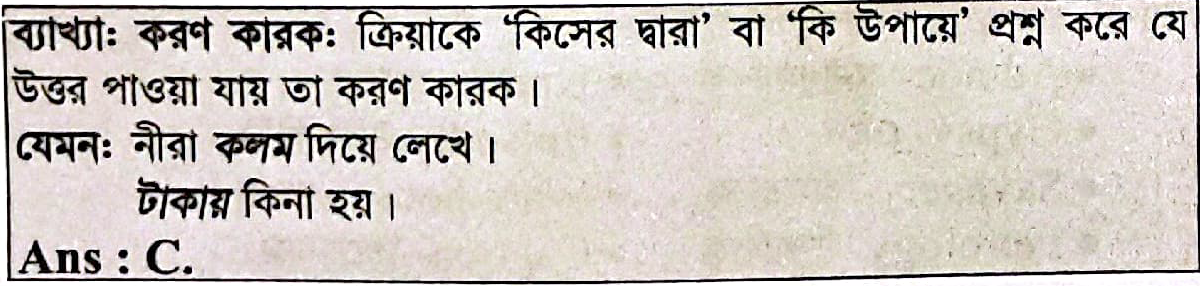 ব্যাখ্যাঃ করণ কারকঃ ক্রিয়াকে ‘কিসের দ্বারা’ বা ‘কি উপায়ে’ প্রশ্ন করে যে
উত্তর পাওয়া যায় তা করণ কারক।
যেমনঃ নীরা কলম দিয়ে লেখে।
টাকায় কিনা হয়।
Ans : C.